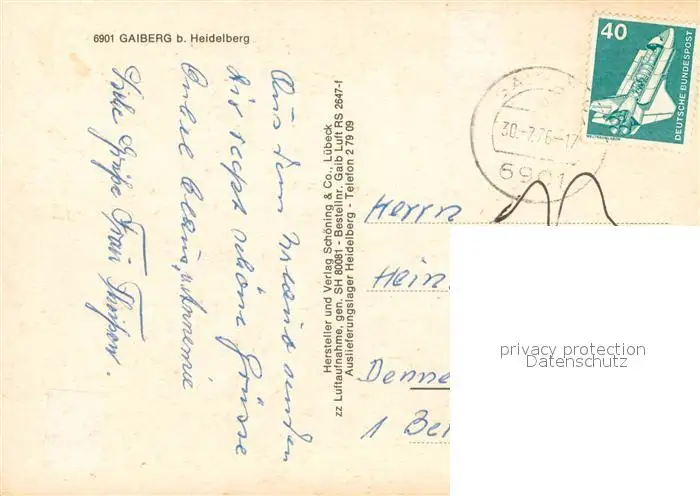 6901 GAIBERG b. Heidelberg
40
DEUTSCHE BUNDESPOST
30.-7.76-17
6901
Aus dem Urlaub senden
dir recht schöne Grüsse
Onkel Claus, u. Annemie
Liebe Grüße Frau
Hersteller und Verlag Schöning & Co., Lübeck
zz Luftaufnahme, gen. SH 80081 - Bestellnr. Gaib Luft RS 2647-f
Auslieferungslager Heidelberg - Telefon 2 79 09
Herrn
Hein
Denne
1 Ber
privacy protection
Datenschutz